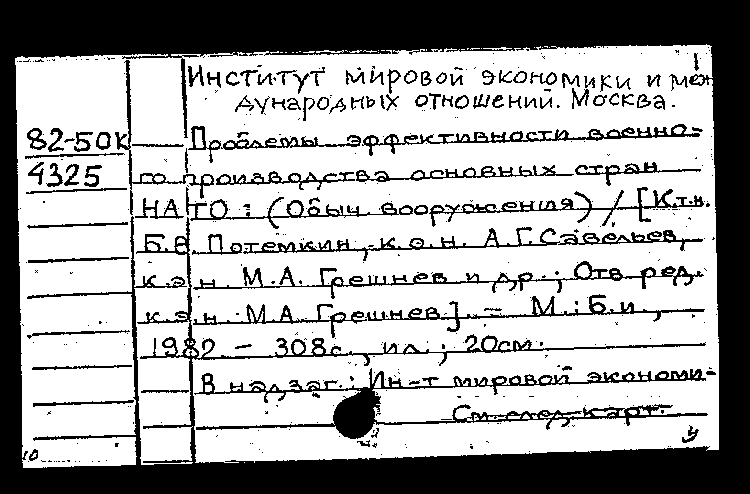 1
Институт мировой экономики и меж-
дународных отношений. Москва.
82-50К Проблемы эффективности военно-
4325 го производства основных стран
НАТО : (Обыч. вооружения) / [К.т.н.
Б.В. Потемкин, к.э.н. А.Г. Савельев,
к.э.н. М.А. Грешнев и др. ; Отв. ред.
к.э.н. М.А. Грешнев]. – М. : Б.и.,
1982. – 308с., ил. ; 20см.
В надзаг.: Ин-т мировой экономи-
См. след. карт.
10